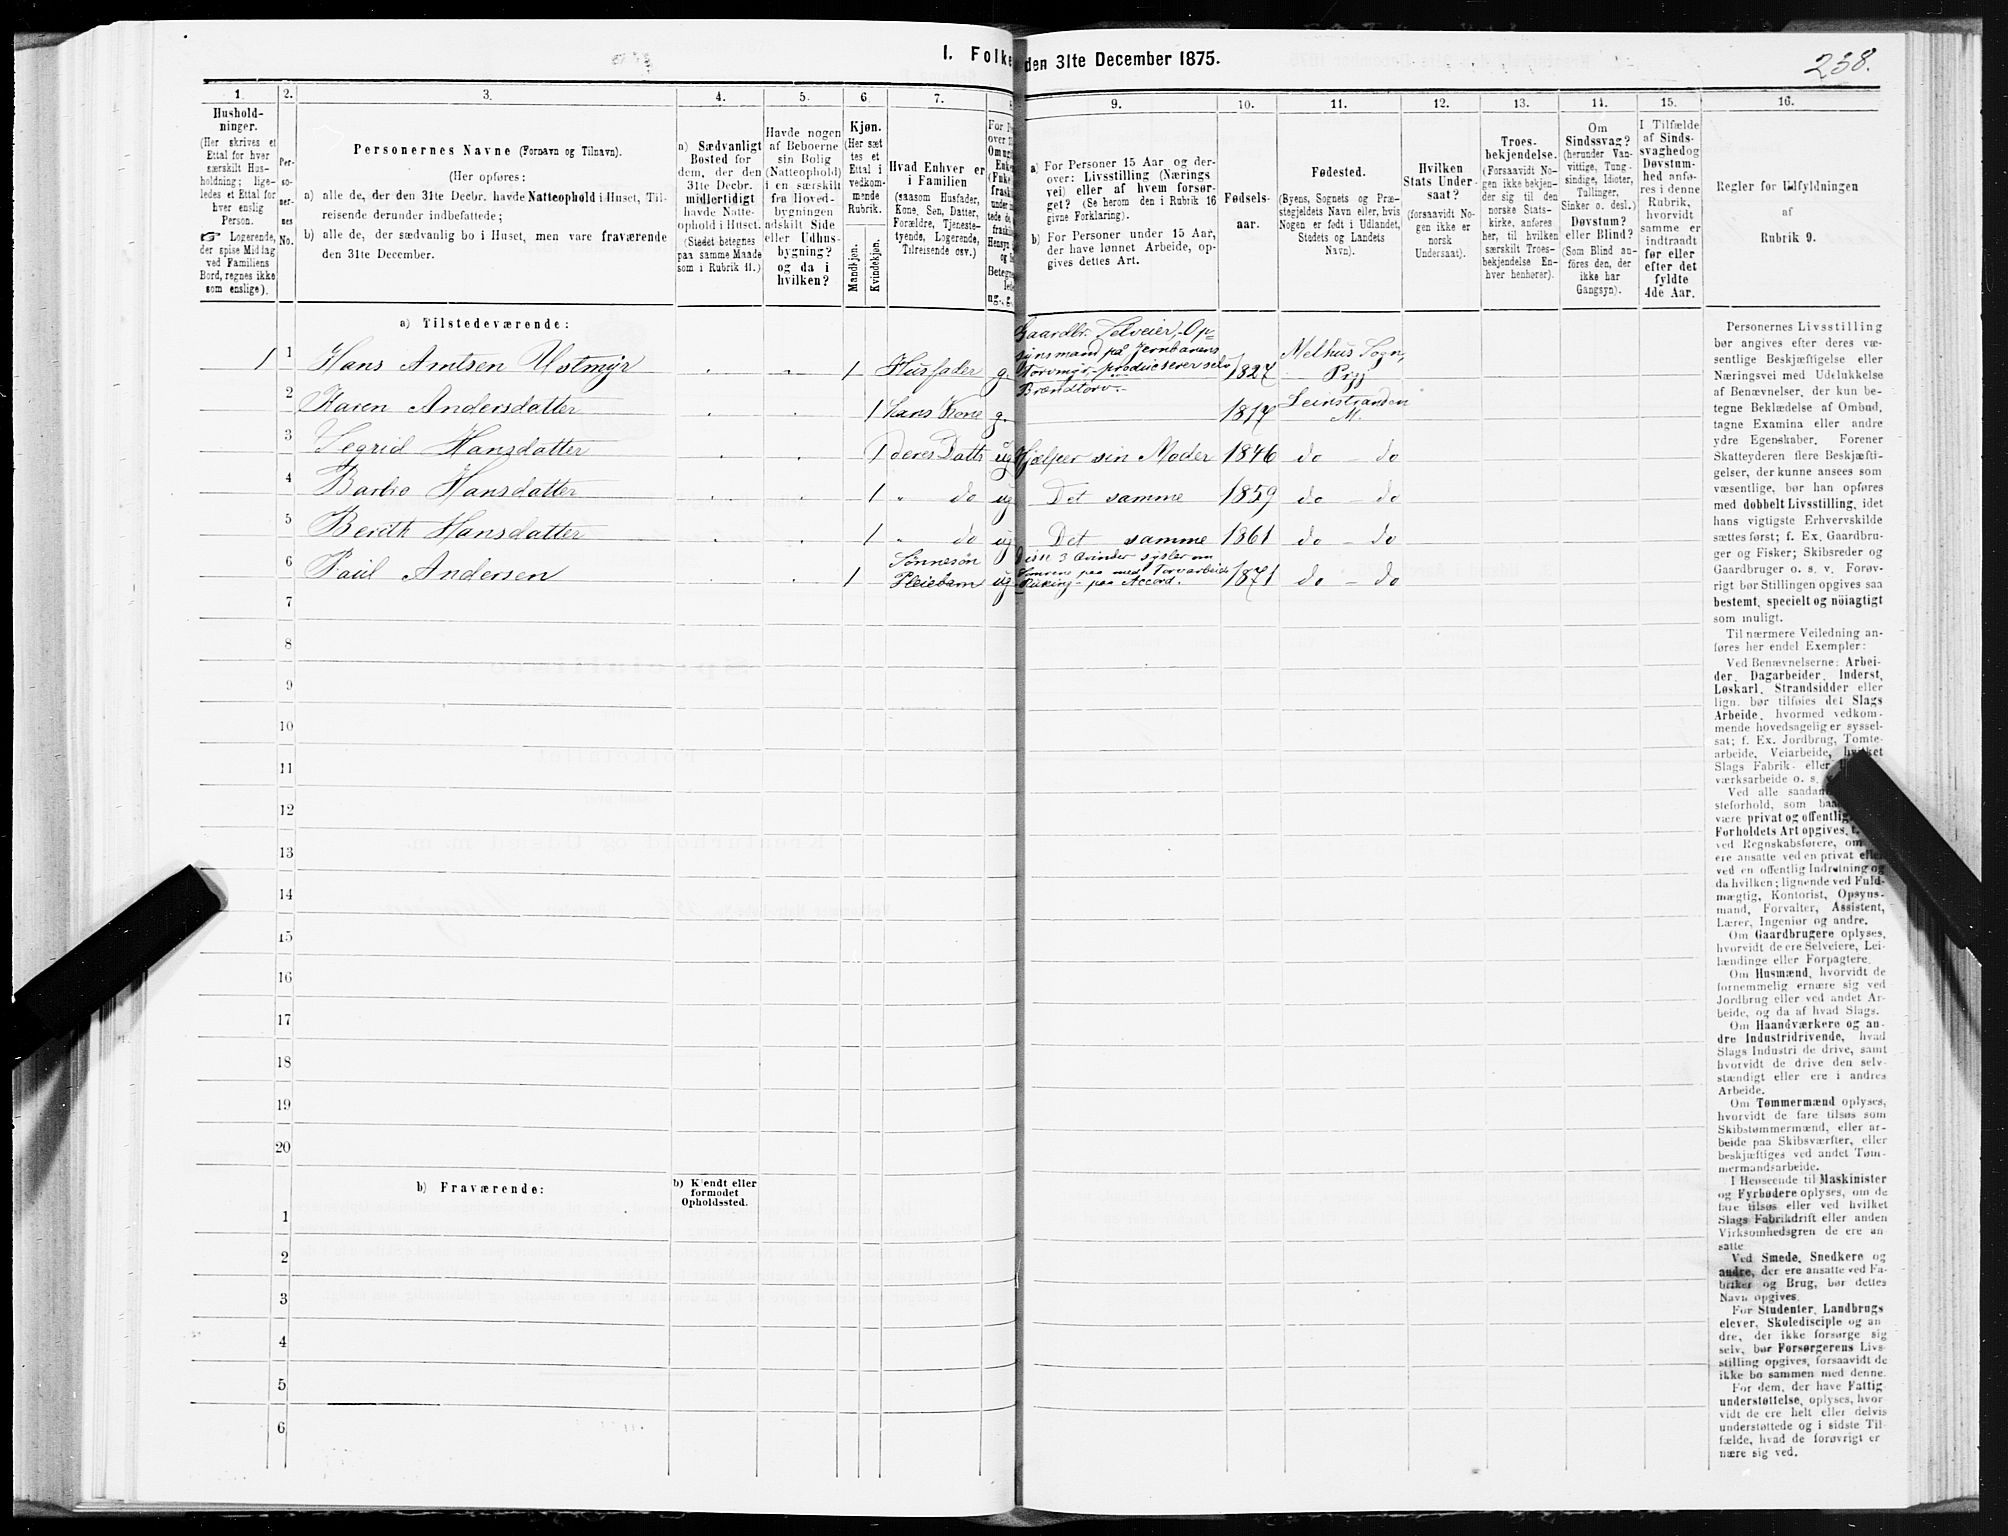 I. Folke den 31te December 1875.
238.
1.
Hushold-
ninger.
(Her skrives et
Ettal for hver
særskilt Hus-
holdning; lige-
ledes et Ettal for
hver enslig
Person.
☞ Logerende,
der spise Middag
ved Familiens
Bord, regnes ikke
som enslige).
2.
Per-
so-
ner-
nes
No.
3.
Personernes Navne (Fornavn og Tilnavn).
(Her opføres:
a) alle de, der den 31te Decbr. havde Natteophold i Huset, Til-
reisende derunder indbefattede;
b) alle de, der sædvanlig bo i Huset, men vare fraværende
den 31te December.
4.
a) Sædvanligt
Bosted for
dem, der den
31te Decbr.
midlertidigt
havde Natte-
ophold i Huset.
(Stedet betegnes
paa samme Maade
som i Rubrik 11.)
5.
Havde nogen
af Beboerne
sin Bolig
(Natteophold)
i en særskilt
fra Hoved-
bygningen
adskilt Side
eller Udhus-
bygning?
og da i
hvilken?
6.
Kjøn.
(Her sæt
tes et
Ettal i
vedkom-
mende
Rubrik.
Mandkjøn.
Kvindekjøn.
7.
Hvad Enhver er
i Familien
(saasom Husfader,
Kone, Søn, Datter,
Forældre, Tjeneste-
tyende, Logerende,
Tilreisende osv.)
8
ug., g.
9.
a) For Personer 15 Aar og der-
over: Livsstilling (Nærings
vei) eller af hvem forsør-
get? (Se herom den i Rubrik 16
givne Forklaring).
b) For Personer under 15 Aar,
der have lønnet Arbeide, op-
gives dettes Art.
10.
Fødsels-
aar.
11.
Fødested.
(Byens, Sognets og Præ-
stegjeldets Navn eller, hvis
Nogen er født i Udlandet,
Stedets og Landets
Navn).
12.
Hvilken
Stats Under-
saat?
(forsaavidt No-
gen ikke er
norsk
Undersaat).
13.
Troes-
bekjendelse.
(Forsaavidt No-
gen ikke bekjen-
der sig til den
norske Stats-
kirke, anføres
her, til hvilken
særskilt Troes-
bekjendelse En-
hver henhører).
14.
Om
Sindssvag?
(herunder Van-
vittige, Tung-
sindige, Idioter,
Tullinger,
Sinker o. desl.)
Døvstum?
eller Blind?
(Som Blind an-
føres den, der
ikke har
Gangsyn).
15.
I Tilfælde
af Sinds-
svaghed og
Døvstum-
hed anfø-
res i denne
Rubrik,
hvorvidt
samme er
indtraadt
før eller
efter det
fyldte
4de Aar.
16.
Regler for Udfyldningen
af
Rubrik 9.
a) Tilstedeværende:
1 1 Hans Arntsen Ustmyr 1 Husfader g. Gaardbr. Selveier, Op-
synsmand på Jernbanens
Torvmyr, produserer selv
Brændtorv. 1827 Melhus Sogn,
Prgj
2 Karen Andersdatter 1 hans Kone g. 1817 Leinstranden
M.
3 Segrid Hansdatter 1 deres Datts ug Hjælper sin Moder 1846 do – do
4 Barbro Hansdatter 1 " do ug Det samme 1859 do – do
5 Berith Hansdatter 1 " do ug Det samme 1861 do – do
6 Paul Andersen 1 Sønnesøn
Pleiebarn ug Disse 3 Qvinder sysler om
Somrene paa med Torvarbeide
Rusking – paa Accord. 1871 do – do
7
8
9
10
11
12
13
14
15
16
17
18
19
20
b) Fraværende:
b) Kjendt eller
formodet
Opholdssted.
1
2
3
4
5
6
Personernes Livsstilling
bør angives efter deres væ-
sentlige Beskjæftigelse eller
Næringsvei med Udelukkelse
af Benævnelser, der kun be-
tegne Beklædelse af Ombud,
tagne Examina eller andre
ydre Egenskaber. Forener
Skatteyderen flere Beskjæfti-
gelser, der kunne ansees som
væsentlige, bør han opføres
med dobbelt Livsstilling, idet
hans vigtigste Erhvervskilde
sættes først; f. Ex. Gaardbru-
ger og Fisker; Skibsreder og
Gaardbruger o. s. v. Forøv-
rigt bør Stillingen opgives saa
bestemt, specielt og nøiagtigt
som muligt.
Til nærmere Veiledning an-
føres her endel Exempler:
Ved Benævnelserne: Arbei-
der, Dagarbeider, Inderst,
Løskarl, Strandsidder eller
lign. bør tilføies det Slags
Arbeide, hvormed vedkom-
mende hovedsagelig er syssel-
sat; f. Ex. Jordbrug, Tomte-
arbeide, Veiarbeide, hvilket
Slags Fabrik- eller
værksarbeide o. s.
Ved alle saadan
steforhold, som
være privat og offentlig,
Forholdets Art opgives,
ved Regnskabsførere, om
ere ansatte ved en privat eller
ved en offentlig Indretning og
da hvilken; lignende ved Fuld-
mægtig, Kontorist, Opsyns-
mand, Forvalter, Assistent,
Lærer, Ingeniør og andre.
Om Gaardbrugere oplyses,
hvorvidt de ere Selveiere, Lei-
lændinge eller Forpagtere.
Om Husmænd, hvorvidt de
fornemmelig ernære sig ved
Jordbrug eller ved andet Ar-
beide, og da af hvad Slags.
Om Haandværkere og an-
dre Industridrivende, hvad
Slags Industri de drive, samt
hvorvidt de drive den selv-
stændigt eller ere i andres
Arbeide.
Om Tømmermænd oplyses,
hvorvidt de fare tilsøs som
Skibstømmermænd, eller ar-
beide paa Skibsværfter, eller
beskjæftiges ved andet Tøm-
mermandsarbeide.
I Henseende til Maskinister
og Fyrbødere oplyses, om de
fare tilsøs eller ved hvilket
Slags Fabrikdrift eller anden
Virksomhedsgren de ere an
satte
Ved Smede, Snedkere og
andre, der ere ansatte ved Fa-
briker og Brug, bør dettes
Navn opgives.
For Studenter, Landbrugs
elever, Skoledisciple og an
dre, der ikke forsørge sig
selv, bør Forsørgerens Livs-
stilling opgives, forsaavidt de
ikke bo sammen med denne.
For dem, der have Fattig
understøttelse, oplyses, hvor
vidt de ere helt eller delvis
understøttede og i sidste Til-
fælde, hvad de forøvrigt er
nære sig ved.